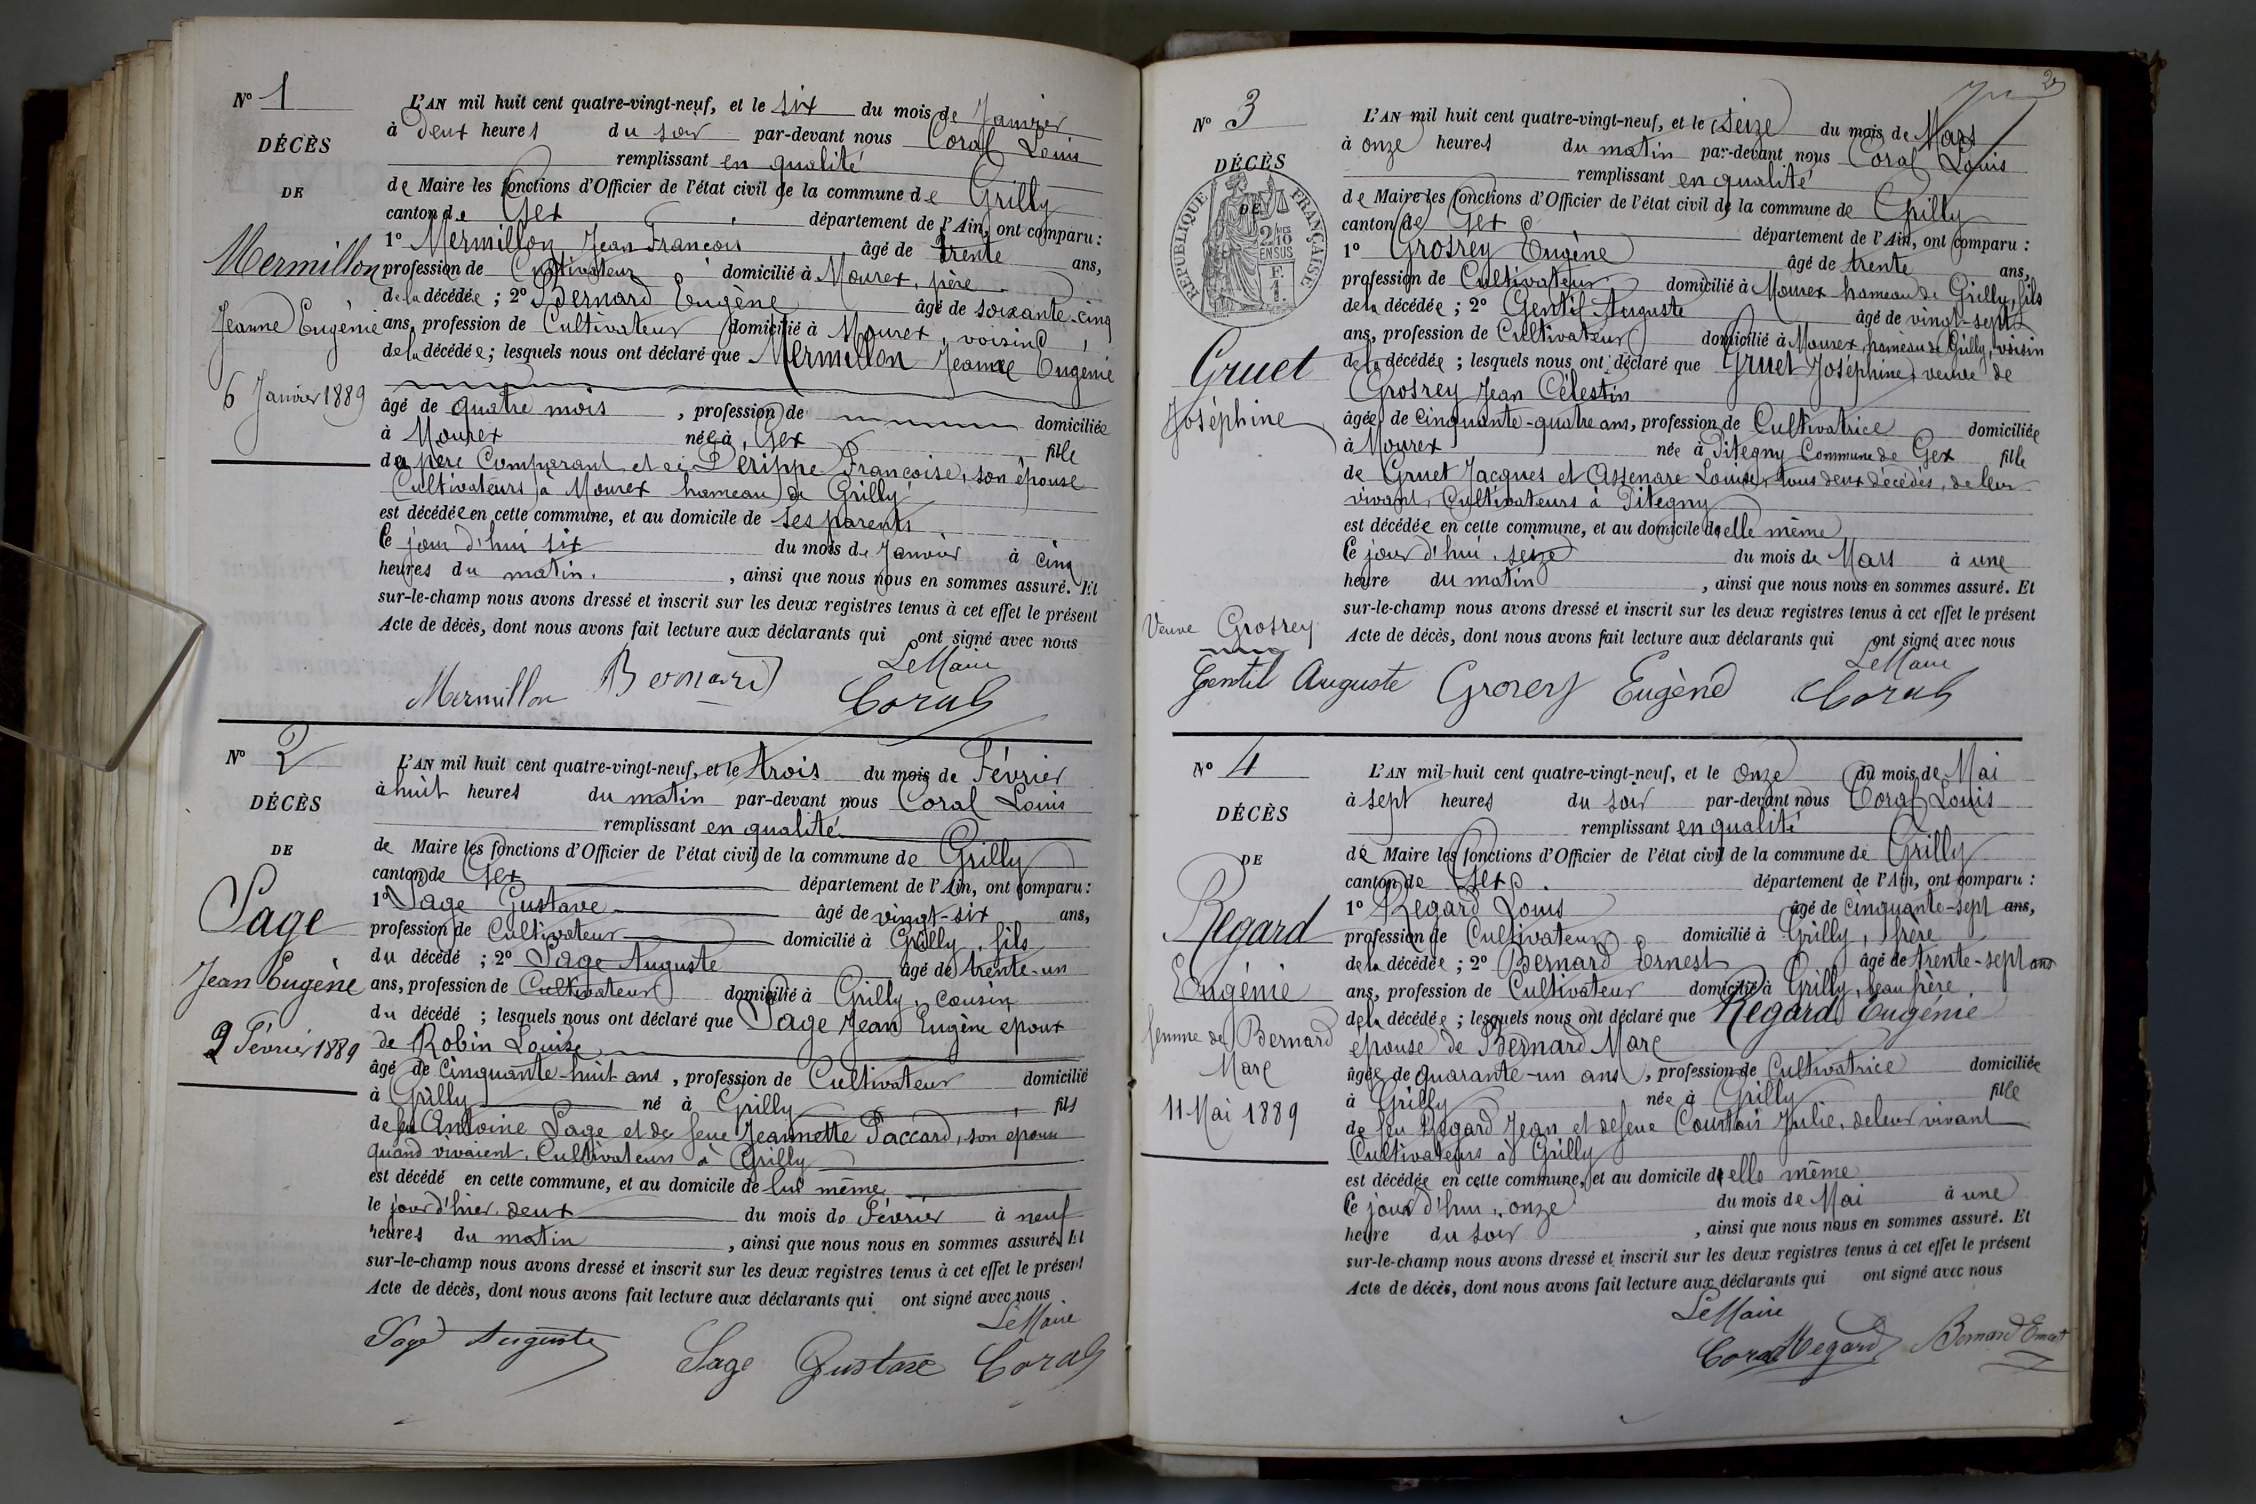 N° 1
DÉCÈS
DE
Mermillon
Jeanne Eugénie
6 Janvier 1889
L'AN mil huit cent quatre-vingt-neuf, et le six du mois de Janvier
à deux heures du soir par-devant nous Coral Louis
remplissant en qualité
de Maire les fonctions d'Officier de l'état civil de la commune de Grilly
canton de Gex département de l'Ain, ont comparu :
1° Mermillon Jean François âgé de trente ans,
profession de Cultivateur domicilié à Mourex, père
de la décédée ; 2° Bernard Eugène âgé de soixante-cinq
ans, profession de Cultivateur domicilié à Mourex, voisin
de la décédée ; lesquels nous ont déclaré que Mermillon Jeanne Eugénie
âgé de quatre mois , profession de domiciliée
à Mourex née à Gex fille
du père Comparant et de Derippe Françoise, son épouse
Cultivateurs à Mourex hameau de Grilly
est décédée en cette commune, et au domicile de ses parents
Ce jour d'hui six du mois de Janvier à cinq
heures du matin. , ainsi que nous nous en sommes assuré. Et
sur-le-champ nous avons dressé et inscrit sur les deux registres tenus à cet effet le présent
Acte de décès, dont nous avons fait lecture aux déclarants qui ont signé avec nous
Le Maire
Mermillon Bernard Coral
N° 2
DÉCÈS
DE
Sage
Jean Eugène
2 Février 1889
L'AN mil huit cent quatre-vingt-neuf, et le trois du mois de Février
à huit heures du matin par-devant nous Coral Louis
remplissant en qualité
de Maire les fonctions d'Officier de l'état civil de la commune de Grilly
canton de Gex département de l'Ain, ont comparu :
1° Sage Gustave âgé de vingt-six ans,
profession de Cultivateur domicilié à Grilly, fils
du décédé ; 2° Sage Auguste âgé de trente-un
ans, profession de Cultivateur domicilié à Grilly, cousin
du décédé ; lesquels nous ont déclaré que Sage Jean Eugène époux
de Robin Louise
âgé de cinquante-huit ans , profession de Cultivateur domicilié
à Grilly né à Grilly fils
de feu Antoine Sage et de feue Jeannette Paccard, son épouse
quand vivaient, Cultivateurs à Grilly
est décédé en cette commune, et au domicile de lui même
le jour d'hier deux du mois de Février à neuf
heures du matin , ainsi que nous nous en sommes assuré. Et
sur-le-champ nous avons dressé et inscrit sur les deux registres tenus à cet effet le présent
Acte de décès, dont nous avons fait lecture aux déclarants qui ont signé avec nous
Le Maire
Sage Auguste Sage Gustave Coral
2
N° 3
DÉCÈS
DE
RÉPUBLIQUE FRANÇAISE
2/10
EN SUS
F.
1.
Gruet
Joséphine
Veuve Grosrey
L'AN mil huit cent quatre-vingt-neuf, et le seize du mois de Mars
à onze heures du matin par-devant nous Coral Louis
remplissant en qualité
de Maire les fonctions d'Officier de l'état civil de la commune de Grilly
canton de Gex département de l'Ain, ont comparu :
1° Grosrey Eugène âgé de trente ans,
profession de Cultivateur domicilié à Mourex hameau de Grilly, fils
de la décédée ; 2° Gentil Auguste âgé de vingt-sept
ans, profession de Cultivateur domicilié à Mourex, hameau de Grilly, voisin
de la décédée ; lesquels nous ont déclaré que Gruet Joséphine, veuve de
Grosrey Jean Célestin
âgée de cinquante-quatre ans, profession de Cultivatrice domiciliée
à Mourex née à Pitegny Commune de Gex fille
de Gruet Jacques et Assenare Louise, tous deux décédés, de leur
vivant, Cultivateurs à Pitegny
est décédée en cette commune, et au domicile d'elle même
Ce jour d'hui, seize du mois de Mars à une
heure du matin , ainsi que nous nous en sommes assuré. Et
sur-le-champ nous avons dressé et inscrit sur les deux registres tenus à cet effet le présent
Acte de décès, dont nous avons fait lecture aux déclarants qui ont signé avec nous
Le Maire
Gentil Auguste Grosrey Eugène Coral
N° 4
DÉCÈS
DE
Regard
Eugénie
femme de Bernard
Marc
11 Mai 1889
L'AN mil huit cent quatre-vingt-neuf, et le onze du mois de Mai
à sept heures du soir par-devant nous Coral Louis
remplissant en qualité
de Maire les fonctions d'Officier de l'état civil de la commune de Grilly
canton de Gex département de l'Ain, ont comparu :
1° Regard Louis âgé de cinquante-sept ans,
profession de Cultivateur domicilié à Grilly, frère
de la décédée ; 2° Bernard Ernest âgé de trente-sept ans
ans, profession de Cultivateur domicilié à Grilly, beau frère
de la décédée ; lesquels nous ont déclaré que Regard Eugénie
épouse de Bernard Marc
âgée de quarante-un ans , profession de Cultivatrice domiciliée
à Grilly née à Grilly fille
de feu Regard Jean et de feue Courtois Julie, de leur vivant
Cultivateurs à Grilly
est décédée en cette commune, et au domicile d'elle même
Ce jour d'hui, onze du mois de Mai à une
heure du soir , ainsi que nous nous en sommes assuré. Et
sur-le-champ nous avons dressé et inscrit sur les deux registres tenus à cet effet le présent
Acte de décès, dont nous avons fait lecture aux déclarants qui ont signé avec nous
Le Maire
Coral Regard Bernard Ernest